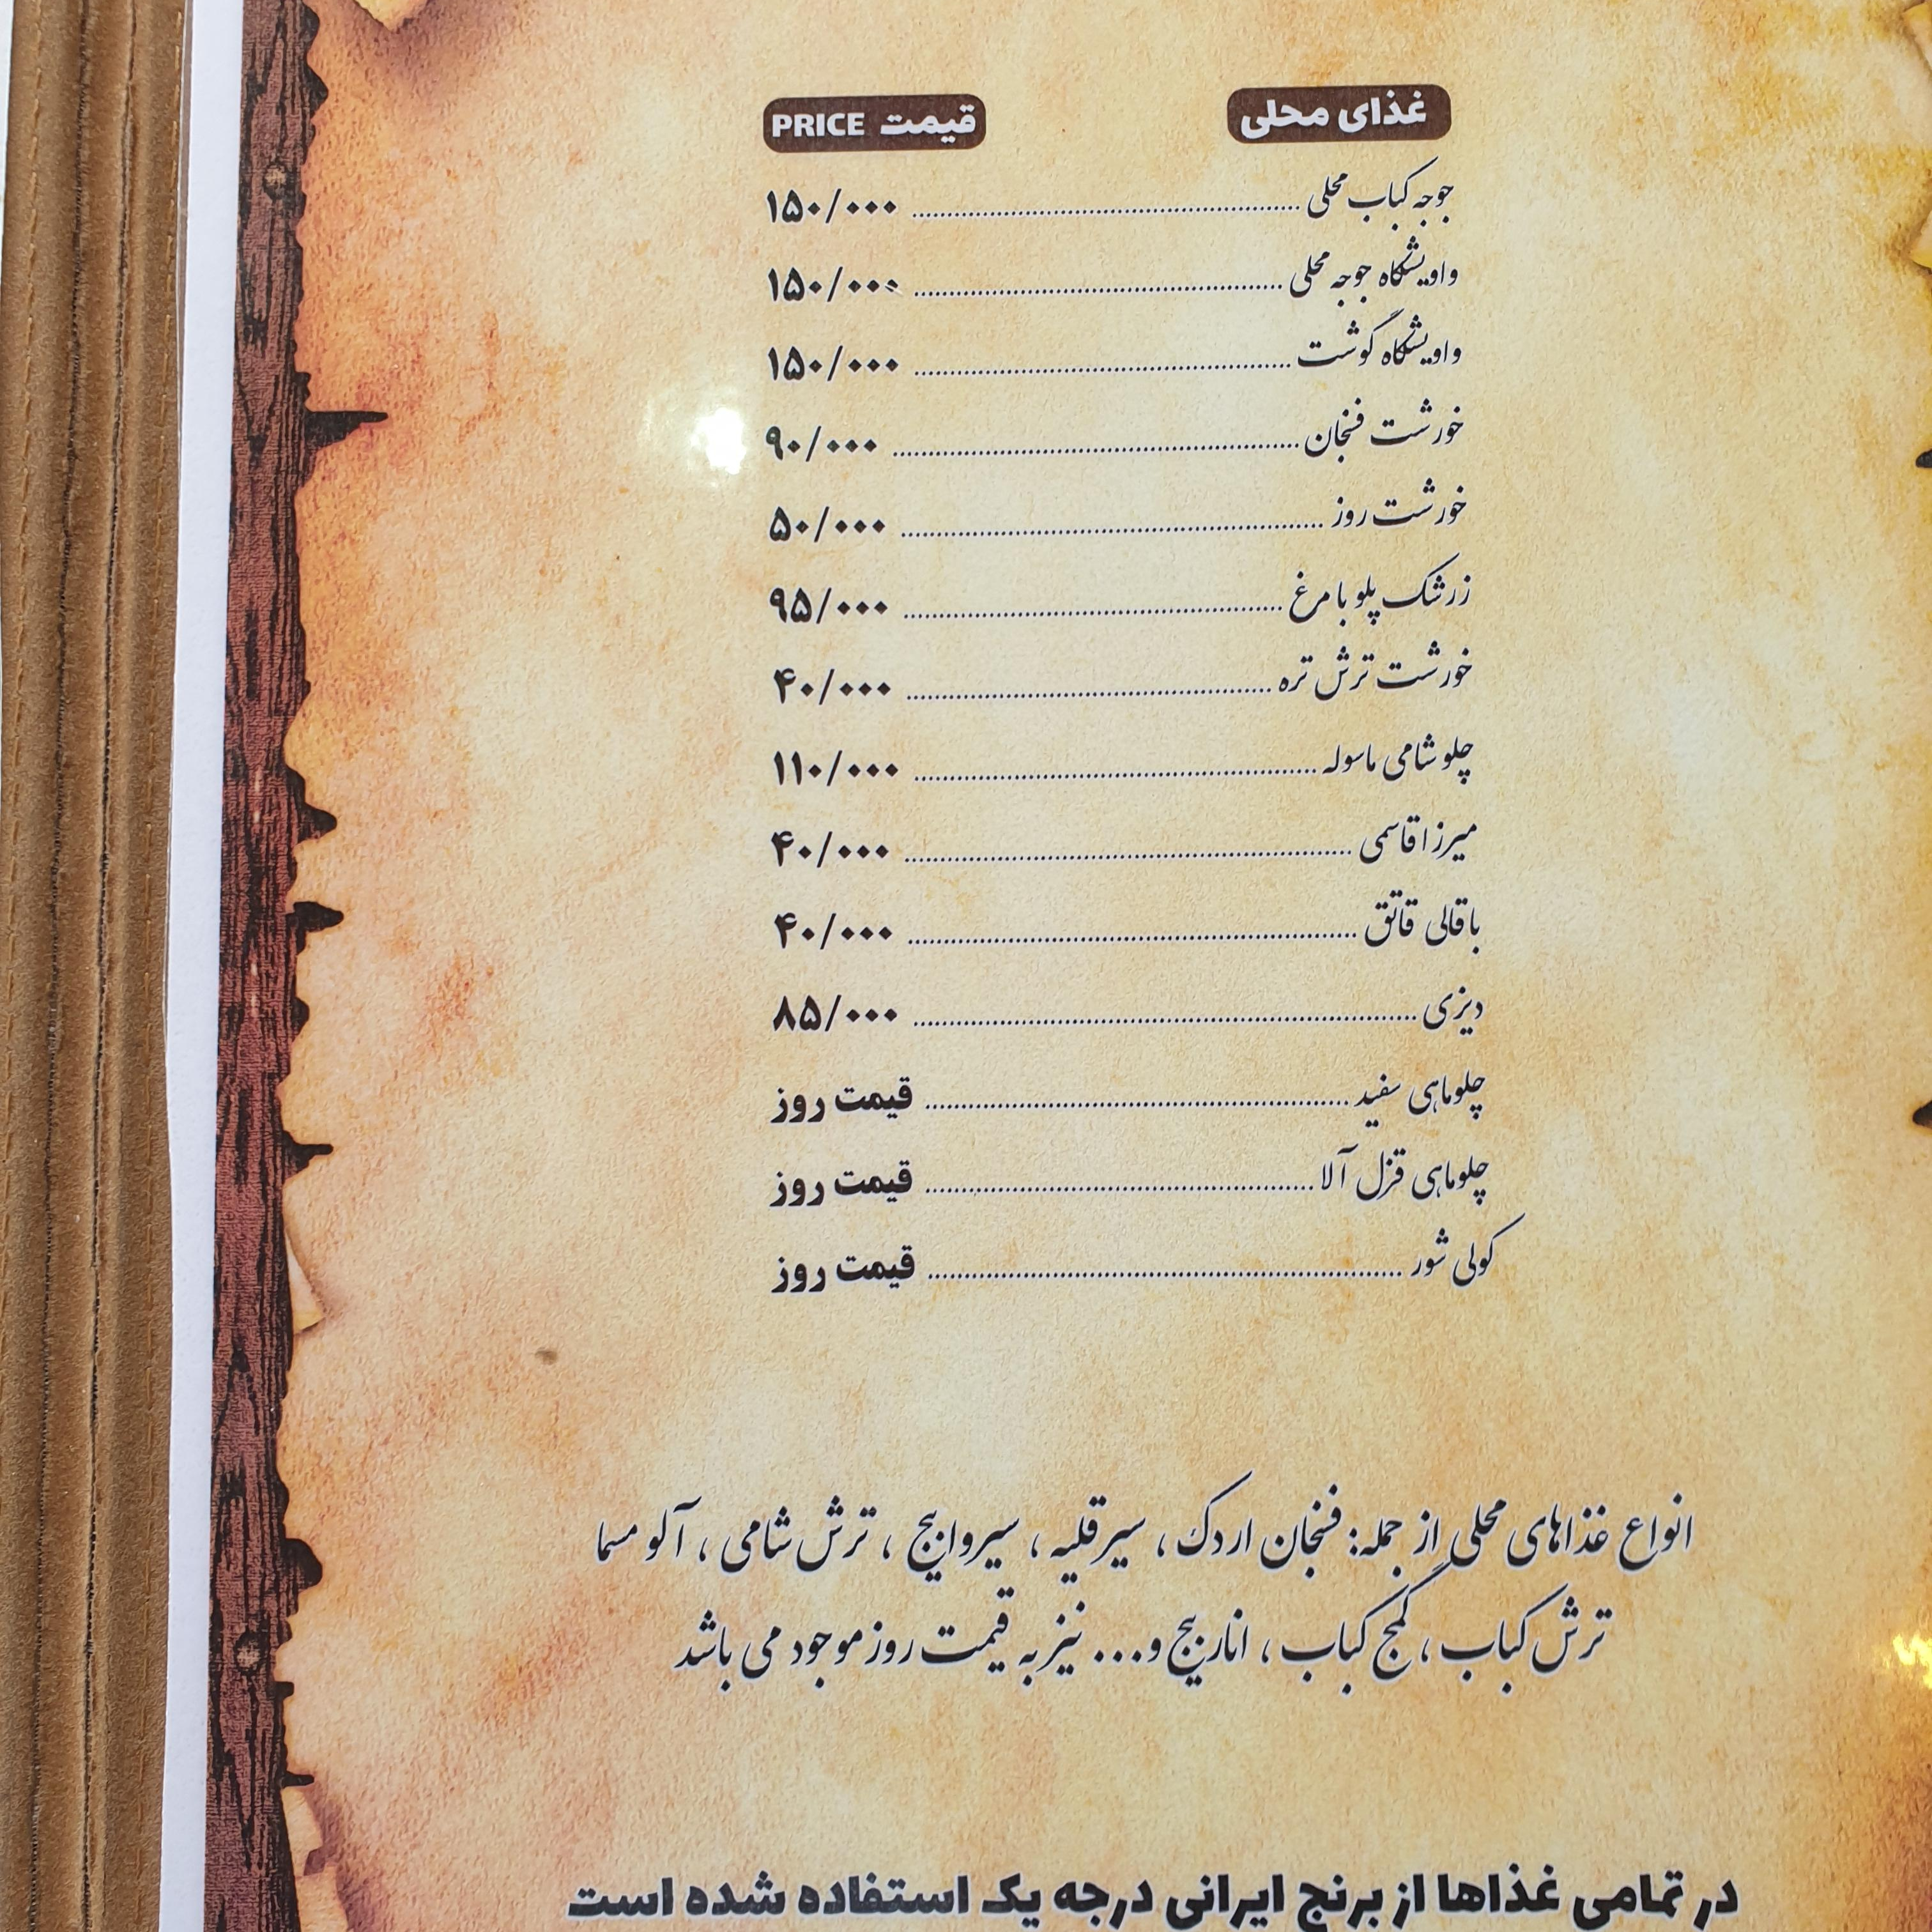 غذای محلی قیمت PRICE
جوجه کباب محلی ۱۵۰/۰۰۰
واویشگاه جوجه محلی ۱۵۰/۰۰۰
واویشگاه گوشت ۱۵۰/۰۰۰
خورشت فسنجان ۹۰/۰۰۰
خورشت روز ۵۰/۰۰۰
زرشک پلو با مرغ ۹۵/۰۰۰
خورشت ترش تره ۴۰/۰۰۰
چلو شامی ماسوله ۱۱۰/۰۰۰
میرزا قاسمی ۴۰/۰۰۰
باقالی قاتق ۴۰/۰۰۰
دیزی ۸۵/۰۰۰
چلوماهی سفید قیمت روز
چلوماهی قزل آلا قیمت روز
کولی شور قیمت روز
انواع غذاهای محلی از جمله: فسنجان اردک ، سیرقلیه ، سیروابیج ، ترش شامی ، آلو مسما
ترش کباب ، گمج کباب ، اناربیج و... نیز به قیمت روز موجود می باشد
در تمامی غذاها از برنج ایرانی درجه یک استفاده شده است